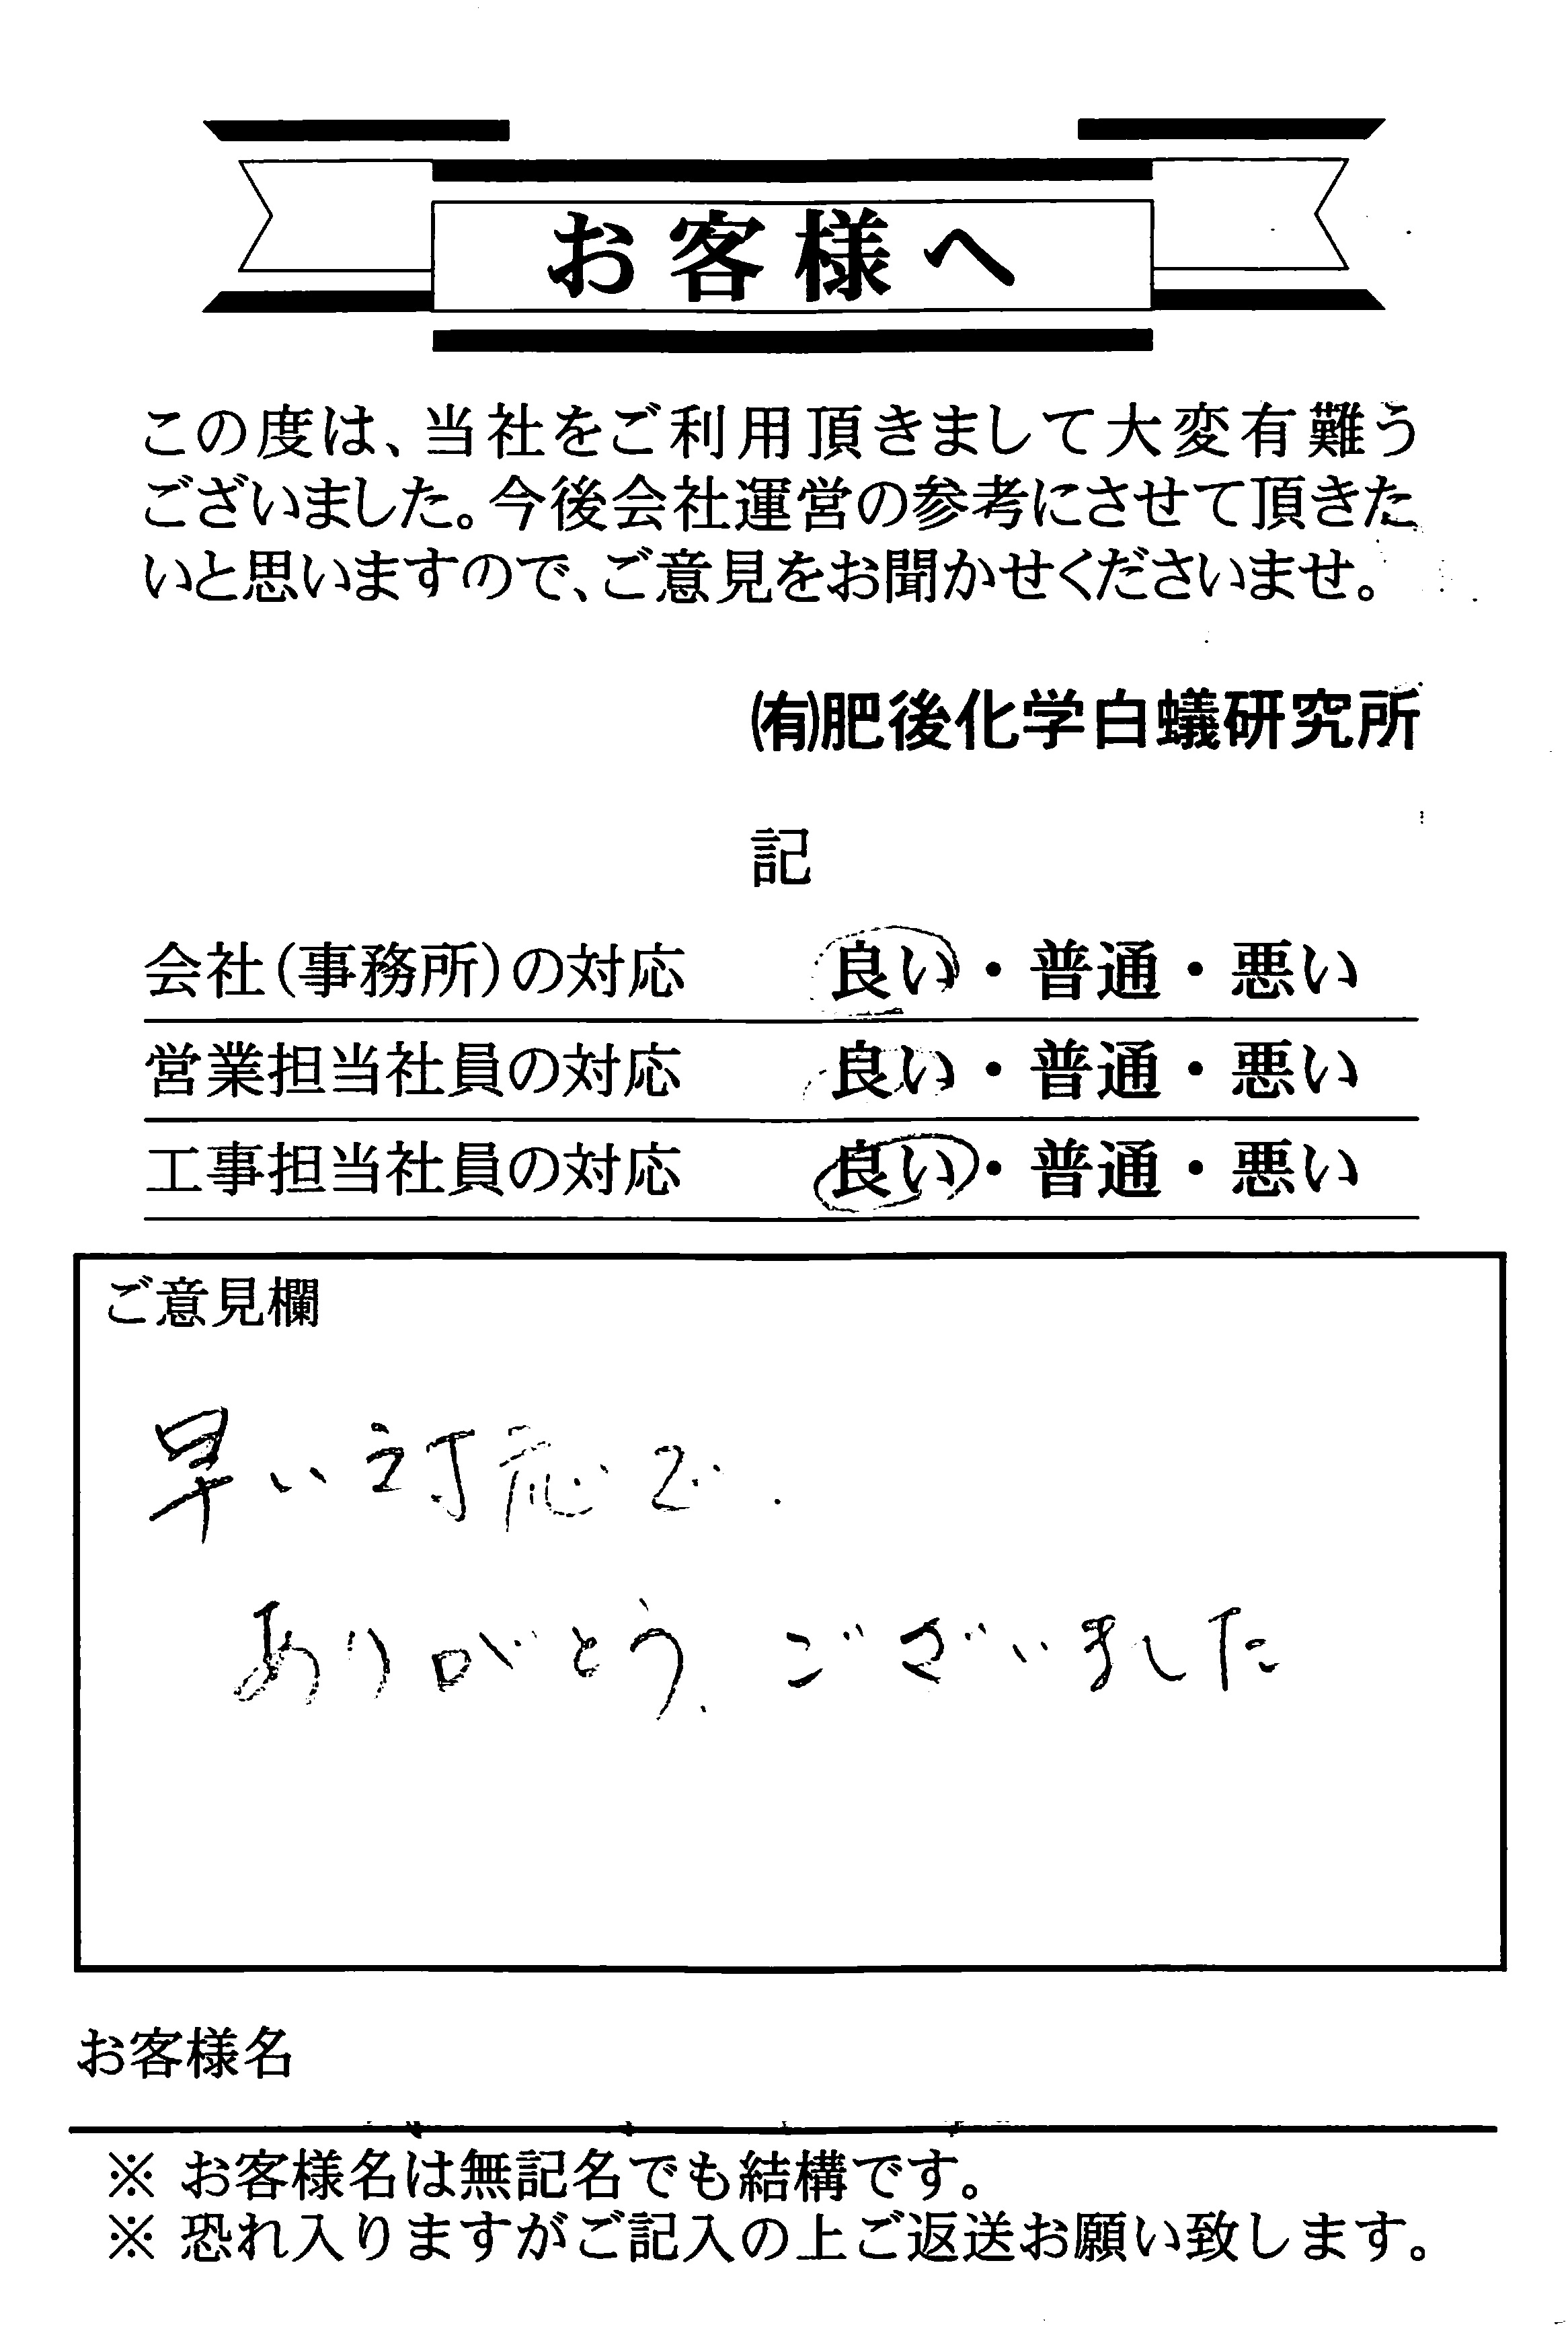 お客様へ
この度は、当社をご利用頂きまして大変有難う
ございました。今後会社運営の参考にさせて頂きた
いと思いますので、ご意見をお聞かせくださいませ。
㈲肥後化学白蟻研究所
記
会社(事務所)の対応 良い・普通・悪い
営業担当社員の対応 良い・普通・悪い
工事担当社員の対応 良い・普通・悪い
ご意見欄
早い対応で
ありがとうございました
お客様名
※ お客様名は無記名でも結構です。
※ 恐れ入りますがご記入の上ご返送お願い致します。